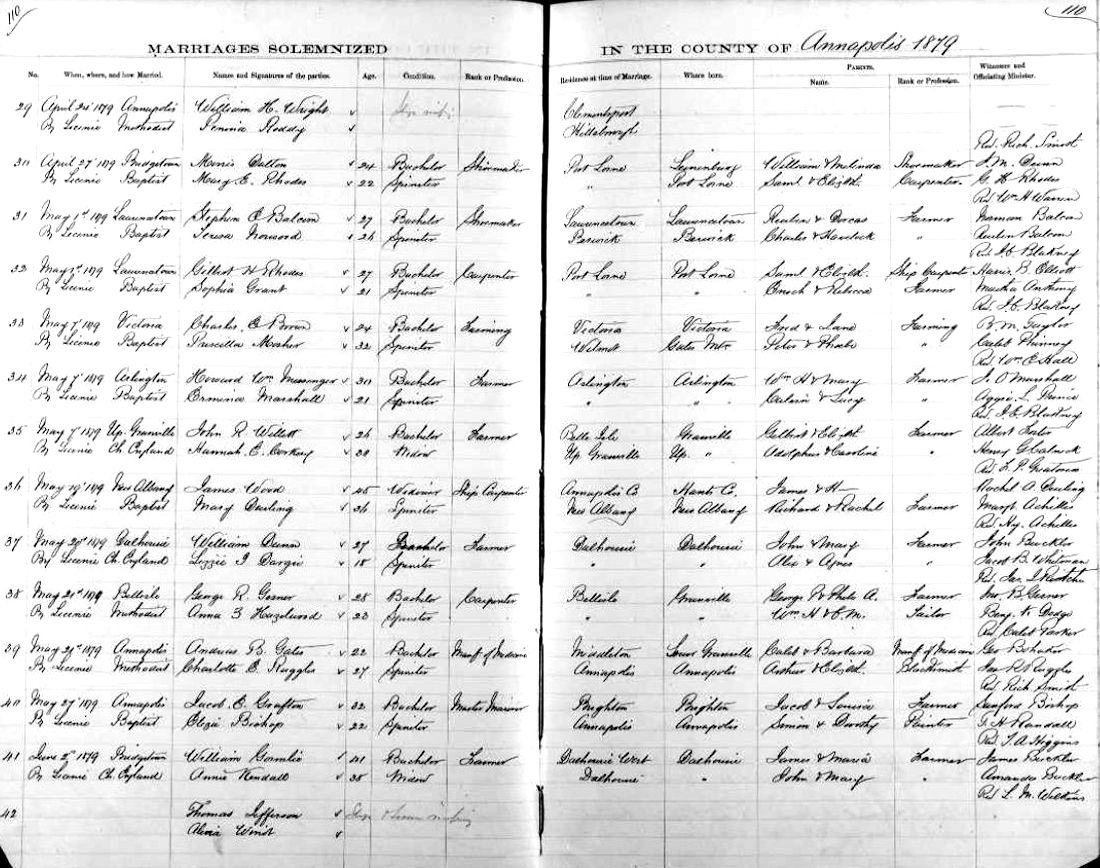 110
110
MARRIAGES SOLEMNIZED IN THE COUNTY OF Annapolis 1879
No. When, where, and how Married. Names and Signatures of the parties. Age. Condition. Rank or Profession. Residence at time of Marriage. Where born. PARENTS. Name. Rank or Profession. Witnesses and Officiating Minister.
29 April 24 1879 Annapolis William H. Wright Clementsport
By Licence Methodist Hillsborough
Rev. Rich. Smith
30 April 27 1879 Bridgetown Dalton 24 Bachelor Shoemaker Port Lorne William & Malinda Shoemaker
By Licence Baptist Mary E. Rhodes 22 Spinster " Port Lorne Saml & Elizth. Carpenter G. H. Rhodes
Rev Wm H Warren
31 May 1st 1879 Lawrencetown Stephen E Balcom 27 Bachelor Shoemaker Lawrencetown Lawrencetown Reuben & Dorcas Farmer Norman Balcom
By Licence Baptist Teresa Norwood 26 Spinster Berwick Berwick Charles & " Reuben Balcom
Rev. J. C. Blakney
32 May 1879 Lawrencetown Gilbert H Rhodes 27 Bachelor Carpenter Port Lorne Port Lorne Saml & Elizth. Ship Carpenter Harris B. Elliott
By Licence Baptist Sophia Grant 21 Spinster " " Enoch & Rebecca Farmer Martha Anthony
Rev. J. C. Blakney
33 May 7 1879 Victoria Charles E Brown 24 Bachelor Farming Victoria Victoria Fred & Jane Farming B. M. Taylor
By Licence Baptist Priscilla Mosher 32 Spinster Wilmot Gates Mt. Peter & Phoebe " Caleb Phinney
Rev Wm E Hall
34 May 7 1879 Arlington Howard Wm Messenger 30 Bachelor Farmer Arlington Arlington Wm H & Mary Farmer J. O Marshall
By Licence Baptist Ermina Marshall 21 Spinster " " Calvin & Lucy " Aggie L.
Rev. J. C. Blakney
35 May 7 1879 Up. Granville John R Willett 26 Bachelor Farmer Belle Isle Granville Gilbert & Elizth Farmer Albert Foster
By Licence Ch. England Hannah E. 30 Widow Up. Granville Up. " Adolphus & Caroline " Henry
Rev. F. P. Greatorex
36 May 19 1879 New Albany James Wood 45 Widower Ship Carpenter Annapolis Co Hants Co. James & H— Rachel A. Durling
By Licence Baptist Mary Durling 36 Spinster New Albany New Albany Richard & Rachel Farmer Margt Achilles
Rev Hy. Achilles
37 May 20 1879 Dalhousie William Dunn 27 Bachelor Farmer Dalhousie Dalhousie John & Mary Farmer John Buckler
By Licence Ch. England Lizzie J Dargie 18 Spinster " " Alex & Agnes " Jacob B. Whitman
38 May 21st 1879 Belleisle George R. Gesner 28 Bachelor Carpenter Belleisle Granville George V & Phebe A. Farmer Jno. B. Gesner
By Licence Methodist Anna B Hazelwood 23 Spinster " " Wm H & E. M. Tailor Benj. R. Dodge
Rev. Caleb Parker
39 May 21st 1879 Annapolis Andrew B. Gates 22 Bachelor Manuf of Medicine Middleton Lower Granville Caleb & Barbara Manuf of Medicine Geo
By Licence Methodist Charlotte E Ruggles 27 Spinster Annapolis Annapolis Arthur & Elizth. Blacksmith Ruggles
Rev. Rich Smith
40 May 27 1879 Annapolis Jacob E Grafton 32 Bachelor Master Mariner Brighton Brighton Jacob & Louisa Farmer Sanford Bishop
By Licence Baptist Bishop 22 Spinster Annapolis Annapolis Simon & Dorothy Painter F. H Randall
Rev. T. A. Higgins
41 June 2 1879 Bridgetown William Gormlie 41 Bachelor Farmer Dalhousie West Dalhousie James & Maria Farmer James Buckler
By Licence Ch. England Annie Kendall 35 Widow Dalhousie " John & Mary " Amanda Buckler
Rev L. M. Wilkins
42 Thomas Jefferson
Alicia